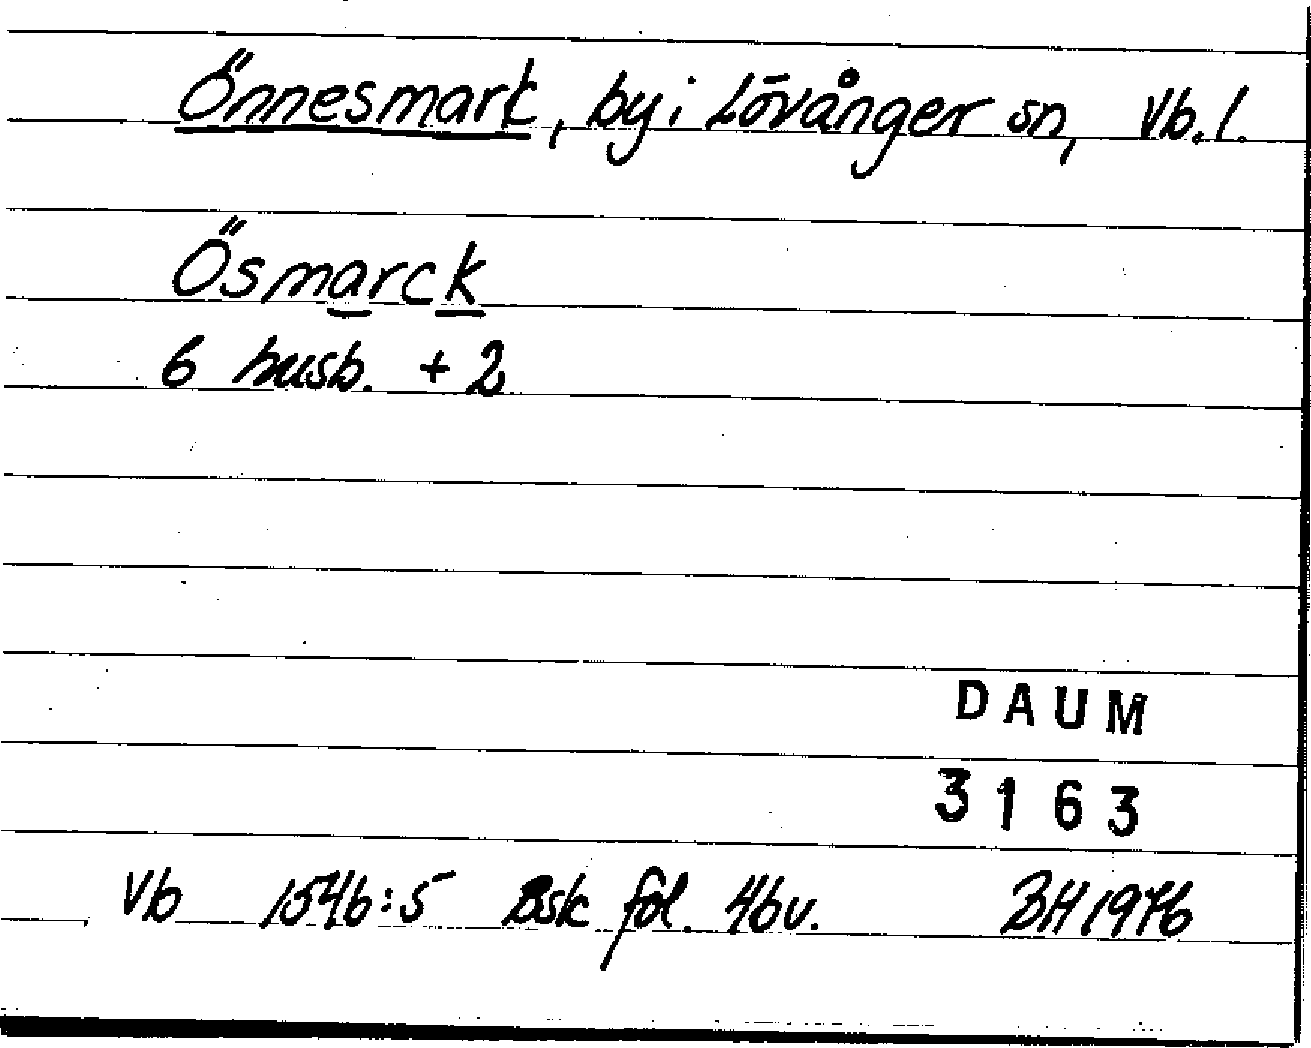 Önnesmark, by i Lövånger sn, Vb. l.
Ösmarck
6 husb. + 2
DAUM
3163
Vb 1546:5 Bsk fol. 46v. BH 1976